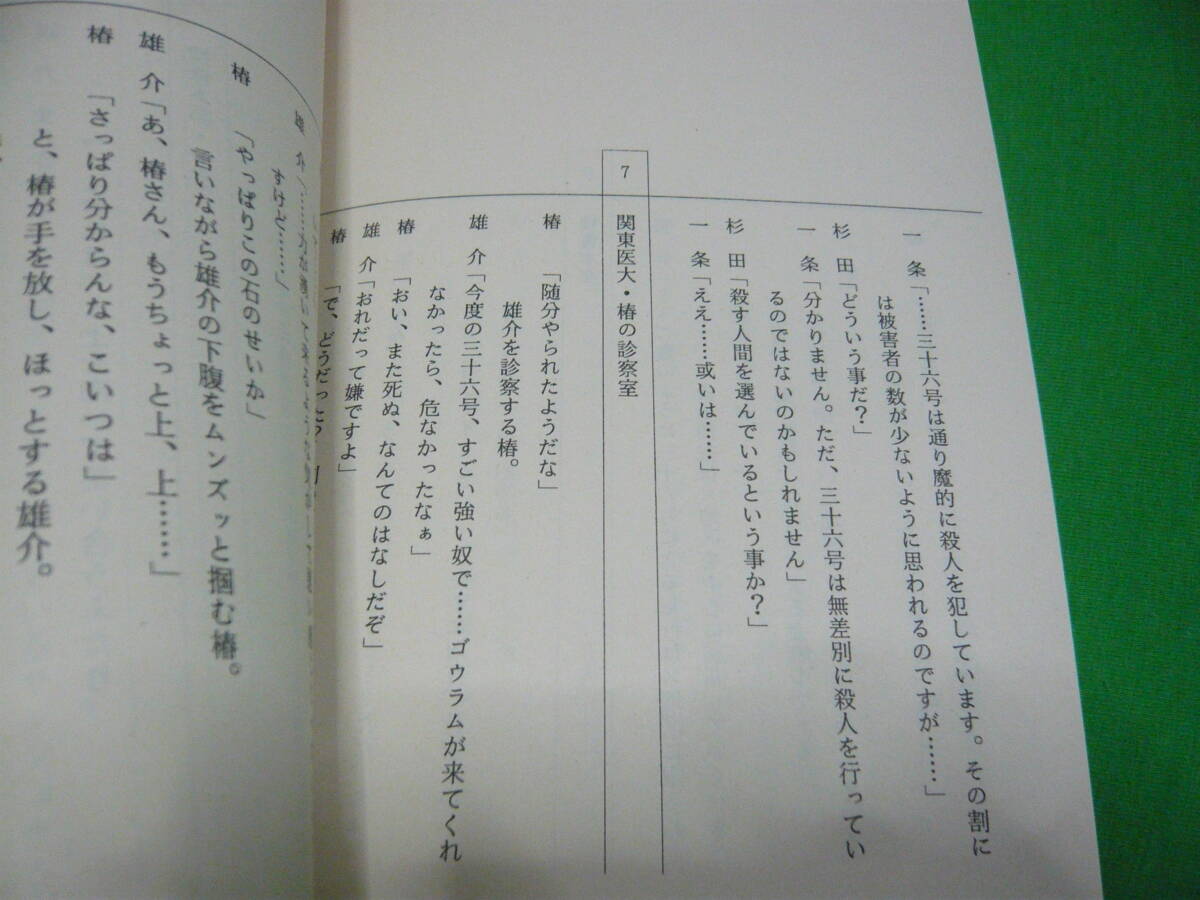 一条「……三十六号は通り魔的に殺人を犯しています。その割に
は被害者の数が少ないように思われるのですが……」
杉田「どういう事だ？」
一条「分かりません。ただ、三十六号は無差別に殺人を行ってい
るのではないのかもしれません」
杉田「殺す人間を選んでいるという事か？」
一条「ええ……或いは……」
7 関東医大・椿の診察室
椿「随分やられたようだな」
雄介を診察する椿。
雄介「今度の三十六号、すごい強い奴で……ゴウラムが来てくれ
なかったら、危なかったなぁ」
椿「おい、また死ぬ、なんてのはなしだぞ」
雄介「おれだって嫌ですよ」
椿「で、どうだった？
雄介
すけど……」
椿「やっぱりこの石のせいか」
言いながら雄介の下腹をムンズッと掴む椿。
雄介「あ、椿さん、もうちょっと上、上……」
椿「さっぱり分からんな、こいつは」
と、椿が手を放し、ほっとする雄介。